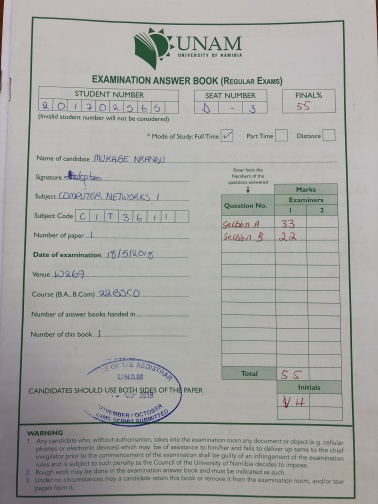 UNAM
UNIVERSITY OF NAMIBIA
EXAMINATION ANSWER BOOK (REGULAR EXAMS)
STUDENT NUMBER
201702565
SEAT NUMBER
D - 3
FINAL%
55
(Invalid student number will not be considered)
* Mode of Study: Full Time ✓ Part Time Distance
Name of candidate MUKABE NKANDU
Signature
Subject COMPUTER NETWORKS 1
Subject Code CIT3611
Number of paper 1
Date of examination 18/5/2018
Venue W269
Course (B.A., B.Com) 22BSCO
Number of answer books handed in
Number of this book 1
Enter here the
Numbers of the
questions answered
Question No.
Marks
Examiners
1 2
Section A 33
Section B 22
Total 55
Initials
VH
OF THE REGISTRAR
UNAM
2018
NOVEMBER / OCTOBER
EXAMS SCRIPT SUBMITTED
CANDIDATES SHOULD USE BOTH SIDES OF THE PAPER
WARNING
1. Any candidate who, without authorisation, takes into the examination room any document or object (e.g. cellular
phones or electronic devices) which may be of assistance to him/her and fails to deliver up same to the chief
invigilator prior to the commencement of the examination shall be guilty of an infringement of the examination
rules and is subject to such penalty as the Council of the University of Namibia decides to impose.
2. Rough work may be done in the examination answer book and must be indicated as such.
3. Under no circumstances may a candidate retain this book or remove it from the examination room, and/or tear
pages from it.